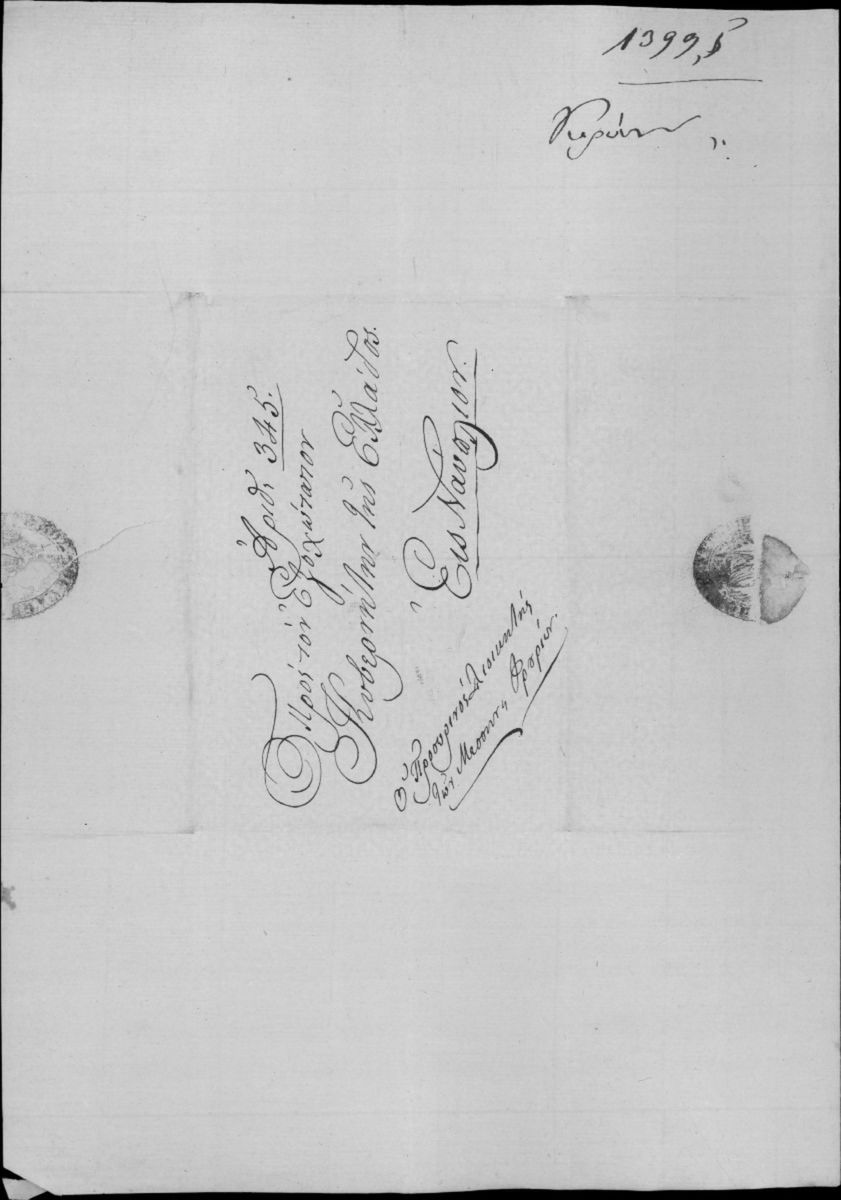 1399,
Ἀριθ. 345.
Πρὸς τὸν Ἐξοχώτατον
Κυβερνήτην τῆς Ἑλλάδος.
Εἰς Ναύπλιον.
Ὁ Προσωρινὸς Διοικητὴς
τῶν Μεσσην. Φρουρίων.